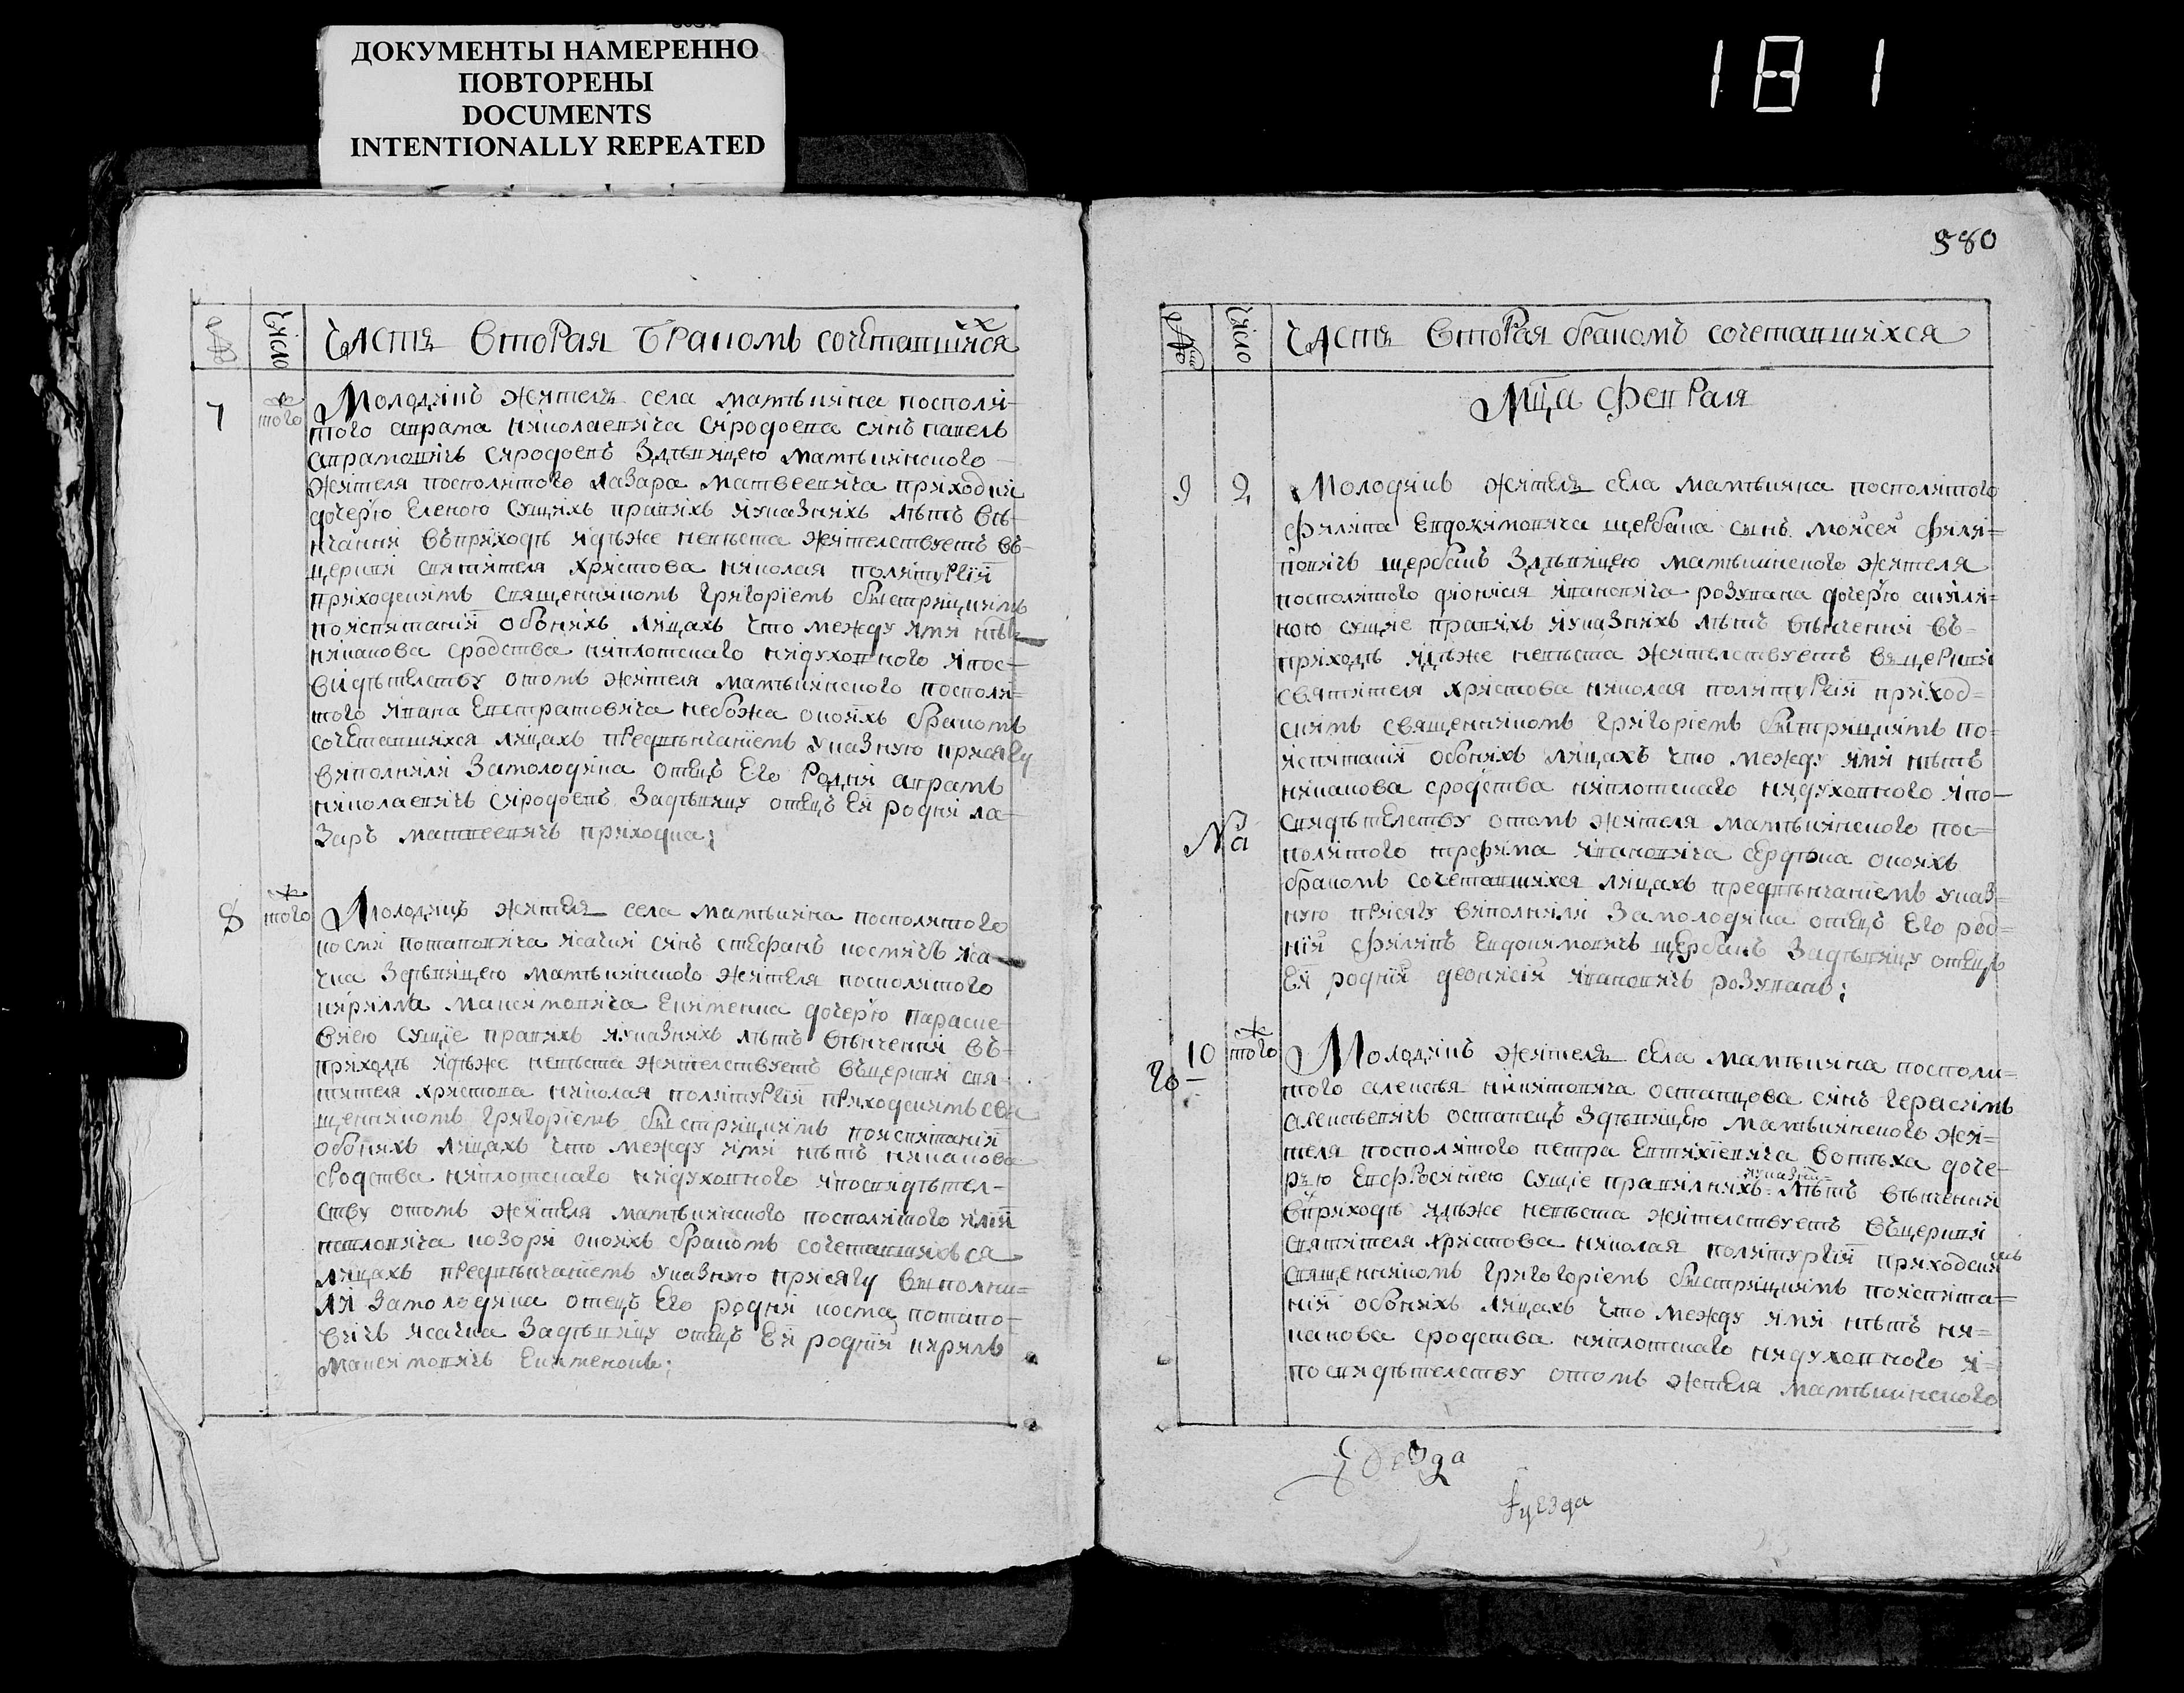 ДОКУМЕНТЫ НАМЕРЕННО
ПОВТОРЕНЫ
DOCUMENTS
INTENTIONALLY REPEATED
181
№ Число Часть вторая бракомъ сочетавшихся
7 того Молодикъ жителъ села матвѣивка посполи-
того аврама николаевича сиродоева синъ павелъ
аврамовичъ сиродоевъ Здѣвицею матвѣивского
жителя посполитого лазара матвеевича приходки
дочерю Еленою сущихъ правихъ иуказнихъ лѣтъ вѣ-
нчанни въприходѣ идѣже невѣста жителствуетъ въ-
церкви святителя христова николая политургіи
приходскимъ священикомъ григоріемъ быстрицкимъ
поиспитаніи обоихъ лицахъ что между ими нѣтъ
никакова сродства ниплотскаго нидуховного ипос-
видѣтелству отомъ жителя матвѣивского посполи-
того ивана Евстратовича небожа оноихъ бракомъ
сочетавшихся лицахъ предвѣнчаніемъ указную присягу
виполнили Замолодика отецъ Его родни аврамъ
николаевичъ сиродоевъ Задѣвицу отецъ Ея родни ла-
Заръ матвеевичъ приходка;
8 того Молодикъ жителя села матвѣивка посполитого
кости потаповича исачки синъ стефанъ костичъ иса-
чка Здѣвицею матвѣивского жителя посполитого
кирилла максимовича Екименка дочерю параске-
виею сущіе правихъ иуказнихъ лѣтъ вѣнченни въ-
приходѣ идѣже невѣста жителствуетъ вѣцеркви свя-
тителя христова николая политургіи приходскимъ свя
щенникомъ григоріемъ быстрицкимъ поиспитаніи
обоихъ лицахъ что между ими нѣтъ никакова
сродства ниплотскаго нидуховного ипосвидѣтел-
ству отомъ жителя матвѣивского посполитого иліи
павловича козори оноихъ бракомъ сочетавшихъся
лицахъ предвѣнчаніемъ указную присягу выполни-
ли Замолодика отецъ Его родни коста потапо-
вичъ исачка Задѣвицу отецъ Ея родніи кирилъ
максимовичъ Екименокъ;
580
№ Число Часть вторая бракомъ сочетавшихся
Мца февраля
9 2 Молодикъ жителя села матвѣивка посполитого
филипа Евдокимовича щербака сынъ моисей фили-
повичъ щербакъ Здѣвицею матвѣивского жителя
посполитого дионисія ивановича розупака дочерю акили-
ною сущие правихъ иуказнихъ лѣтъ вѣнчении въ-
приходѣ идѣже невѣста жителствуетъ вцеркви
святителя христова николая политургіи приход-
скимъ священикомъ григоріемъ бытрицкимъ по-
испитаніи обоихъ лицахъ что между ими нѣтъ
никакова сродства ниплотскаго нидуховного ипо-
свидѣтелству отомъ жителя матвѣивского пос-
политого трефима ивановича сердюка оноихъ
бракомъ сочетавшихся лицахъ предвѣнчаніемъ указ-
ную присягу виполнили Замолодика отецъ Его род-
нiй филипъ Евдокимовичъ щербакъ Задѣвицу отецъ
Ея роднiй деонисiй ивановичъ розупакъ;
10 того Молодикъ жителя села матвѣивка посполи-
того алексѣя никитовича остапцова синъ герасимъ
алексѣевичъ остапецъ Здѣвицею матвѣивского жи-
теля посполитого петра Евтихіевича вовтѣха доче-
рю Евфросиниею сущие правилнихъ иуказни лѣтъ вѣнченни
вприходѣ идѣже невѣста жителствуетъ вѣцеркви
святителя христова николая политургіи приходскимъ
священикомъ григогоріемъ быстрицкимъ поиспита-
нiй обоихъ лицахъ что между ими нѣтъ ни-
какова сродства ниплотскаго нидуховного и-
посвидѣтелству отомъ жителя матвѣивского
уезда